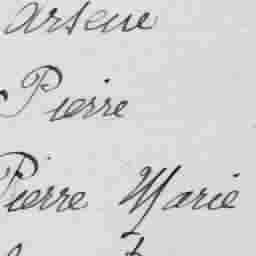 Arsene
Pierre
Pierre Marie